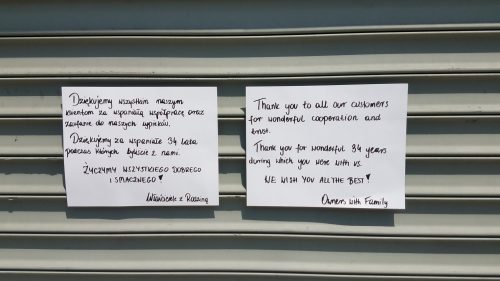 Dziękujemy wszystkim naszym
klientom za wspaniałą współpracę oraz
zaufanie do naszych wypieków.
Dziękujemy za wspaniałe 34 lata
podczas których byliście z nami.
ŻYCZYMY WSZYSTKIEGO DOBREGO
I SMACZNEGO!
z Rodziną
Thank you to all our customers
for wonderful cooperation and
trust.
Thank you for wonderful 34 years
during which you were with us.
WE WISH YOU ALL THE BEST!
Owners with Family